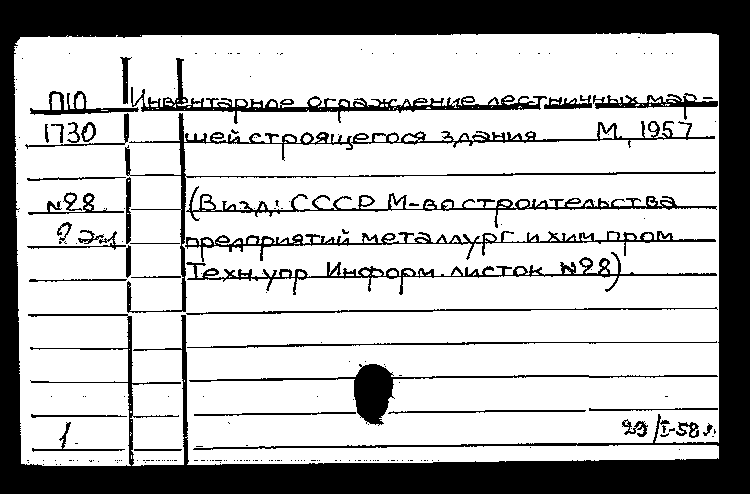 П10 Инвентарное ограждение лестничных мар-
1730 шей строящегося здания М., 1957
№28 (В изд: СССР. М-во строительства
2 эк предприятий металлург. и хим. пром.
Техн. упр. Информ. листок №28).
1 29/I-58 г.